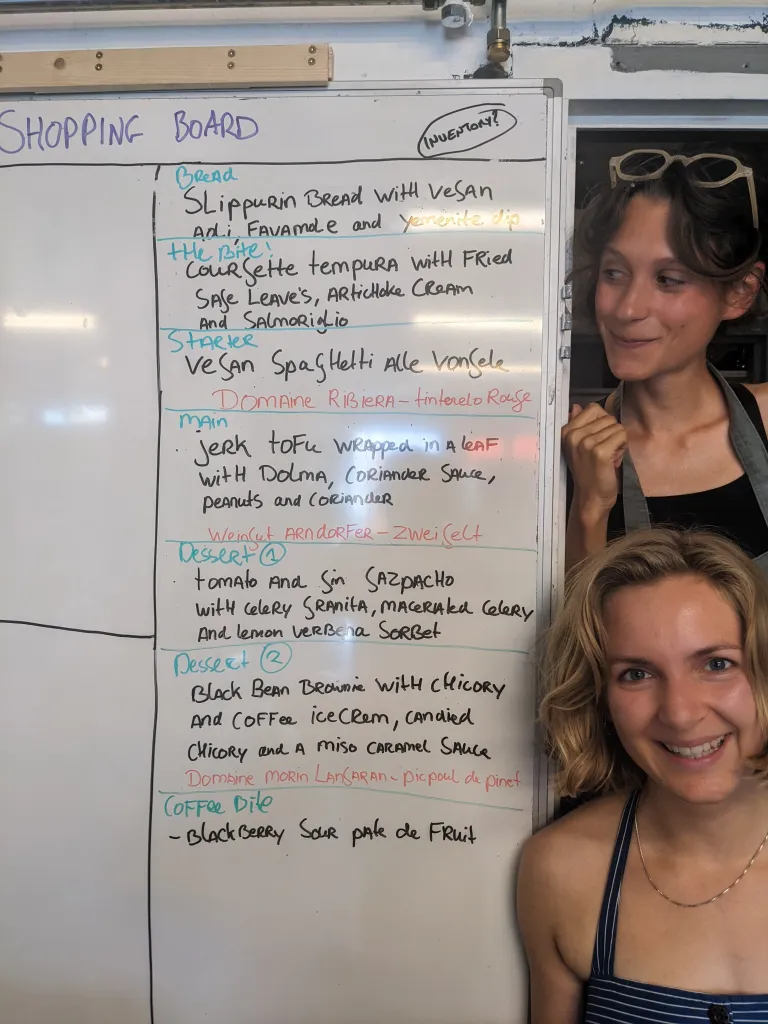 SHOPPING BOARD
INVENTORY?
Bread
SLippurin BREAD with vegan
Aoli, FAVAmole and yemenite dip
tHe Bite!
COURgette tempura with FRied
SAge Leave's, Artichoke CREAM
And SALmoRiglio
Starter
Vegan Spaghetti Alle Vongele
Domaine RIBIERA - tintorelo Rouge
main
jerk tofu wrapped in a leaf
with Dolma, Coriander Sauce,
peanuts and coriander
Weingut Arndorfer - Zweigelt
Dessert 1
tomato and gin gazpacho
with celery granita, macerated celery
And lemon verbena sorbet
Dessert 2
Black Bean Brownie with chicory
and coffee icecrem, candied
chicory and a miso caramel sauce
Domaine morin Langaran - picpoul de pinet
Coffee Bite
- BlackBerry sour pate de fruit